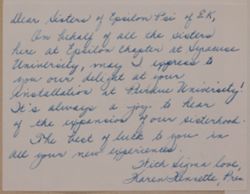 Dear Sisters of Epsilon Psi of ΣK,
On behalf of all the sisters
here at Epsilon Chapter at Syracuse
University, may I express to
you our delight at your
installation at Purdue University!
It's always a joy to hear
of the expansion of our sisterhood.
The best of luck to you in
all your new experiences.
With Sigma love,
Karen